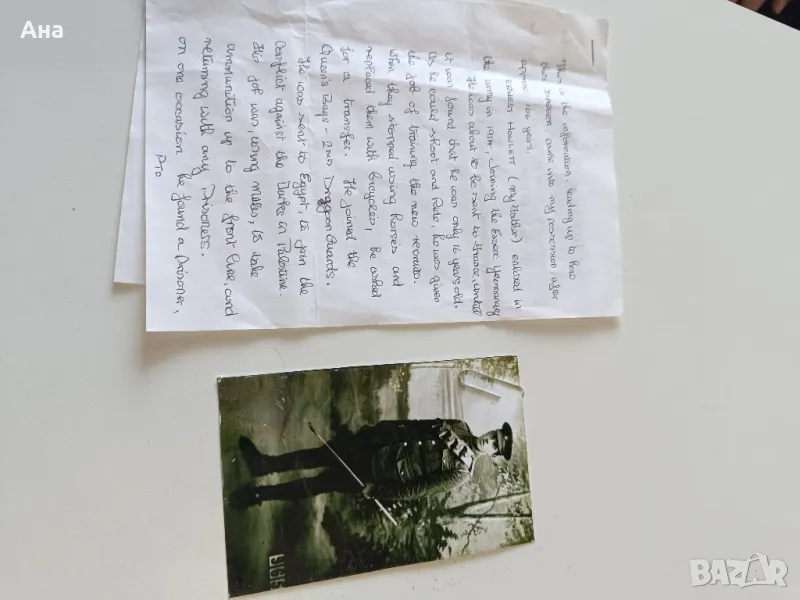 Ана
This is the information, leading up to how
this         came into my possession after
approx 106 years.
ERNEST HOWLETT (my Father) enlised in
the army in 1914, Joining the Essex Yeomanry
He was about to be sent to France, untill
it was found that he was only 16 years old.
As he could shoot and ride, he was given
the job of training the new recruits.
When they stopped using horses and
replaced them with bicycles, he asked
for a transfer. He joined the
Queen's Bays - 2ND Draggon Guards.
He was sent to Egypt, to join the
conflict against the Turks in Palestine.
His job was, using mules, to take
ammunition up to the front line, and
returning with any Prisoners.
on one occasion he found a prisoner,
PTO
BAZAR